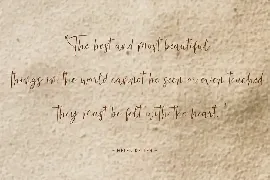 "The best and most beautiful
things in the world cannot be seen or even touched
they must be felt with the heart."
- HELEN KELLER -